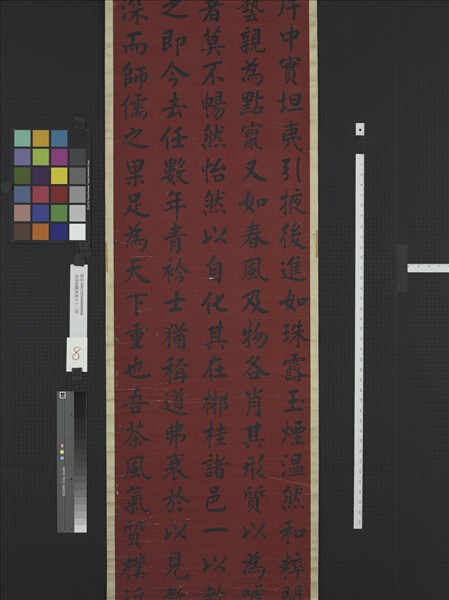 中實坦夷引掖後進如珠露玉煙温然和粹
藝親為點竄又如春風及物各肖其形質以為
者莫不暢然怡然以自化其在郴桂諸邑一以
之即今去任數年青衿士猶稱道弗衰於以見
深而師儒之果足為天下重也吾茶風氣質樸近
8